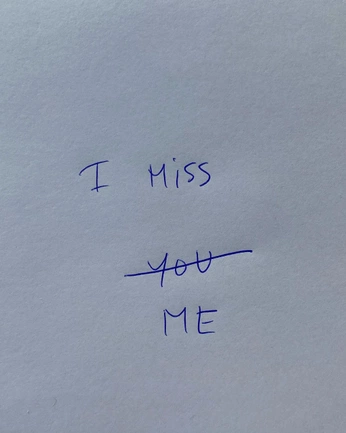 I Miss
YOU
ME